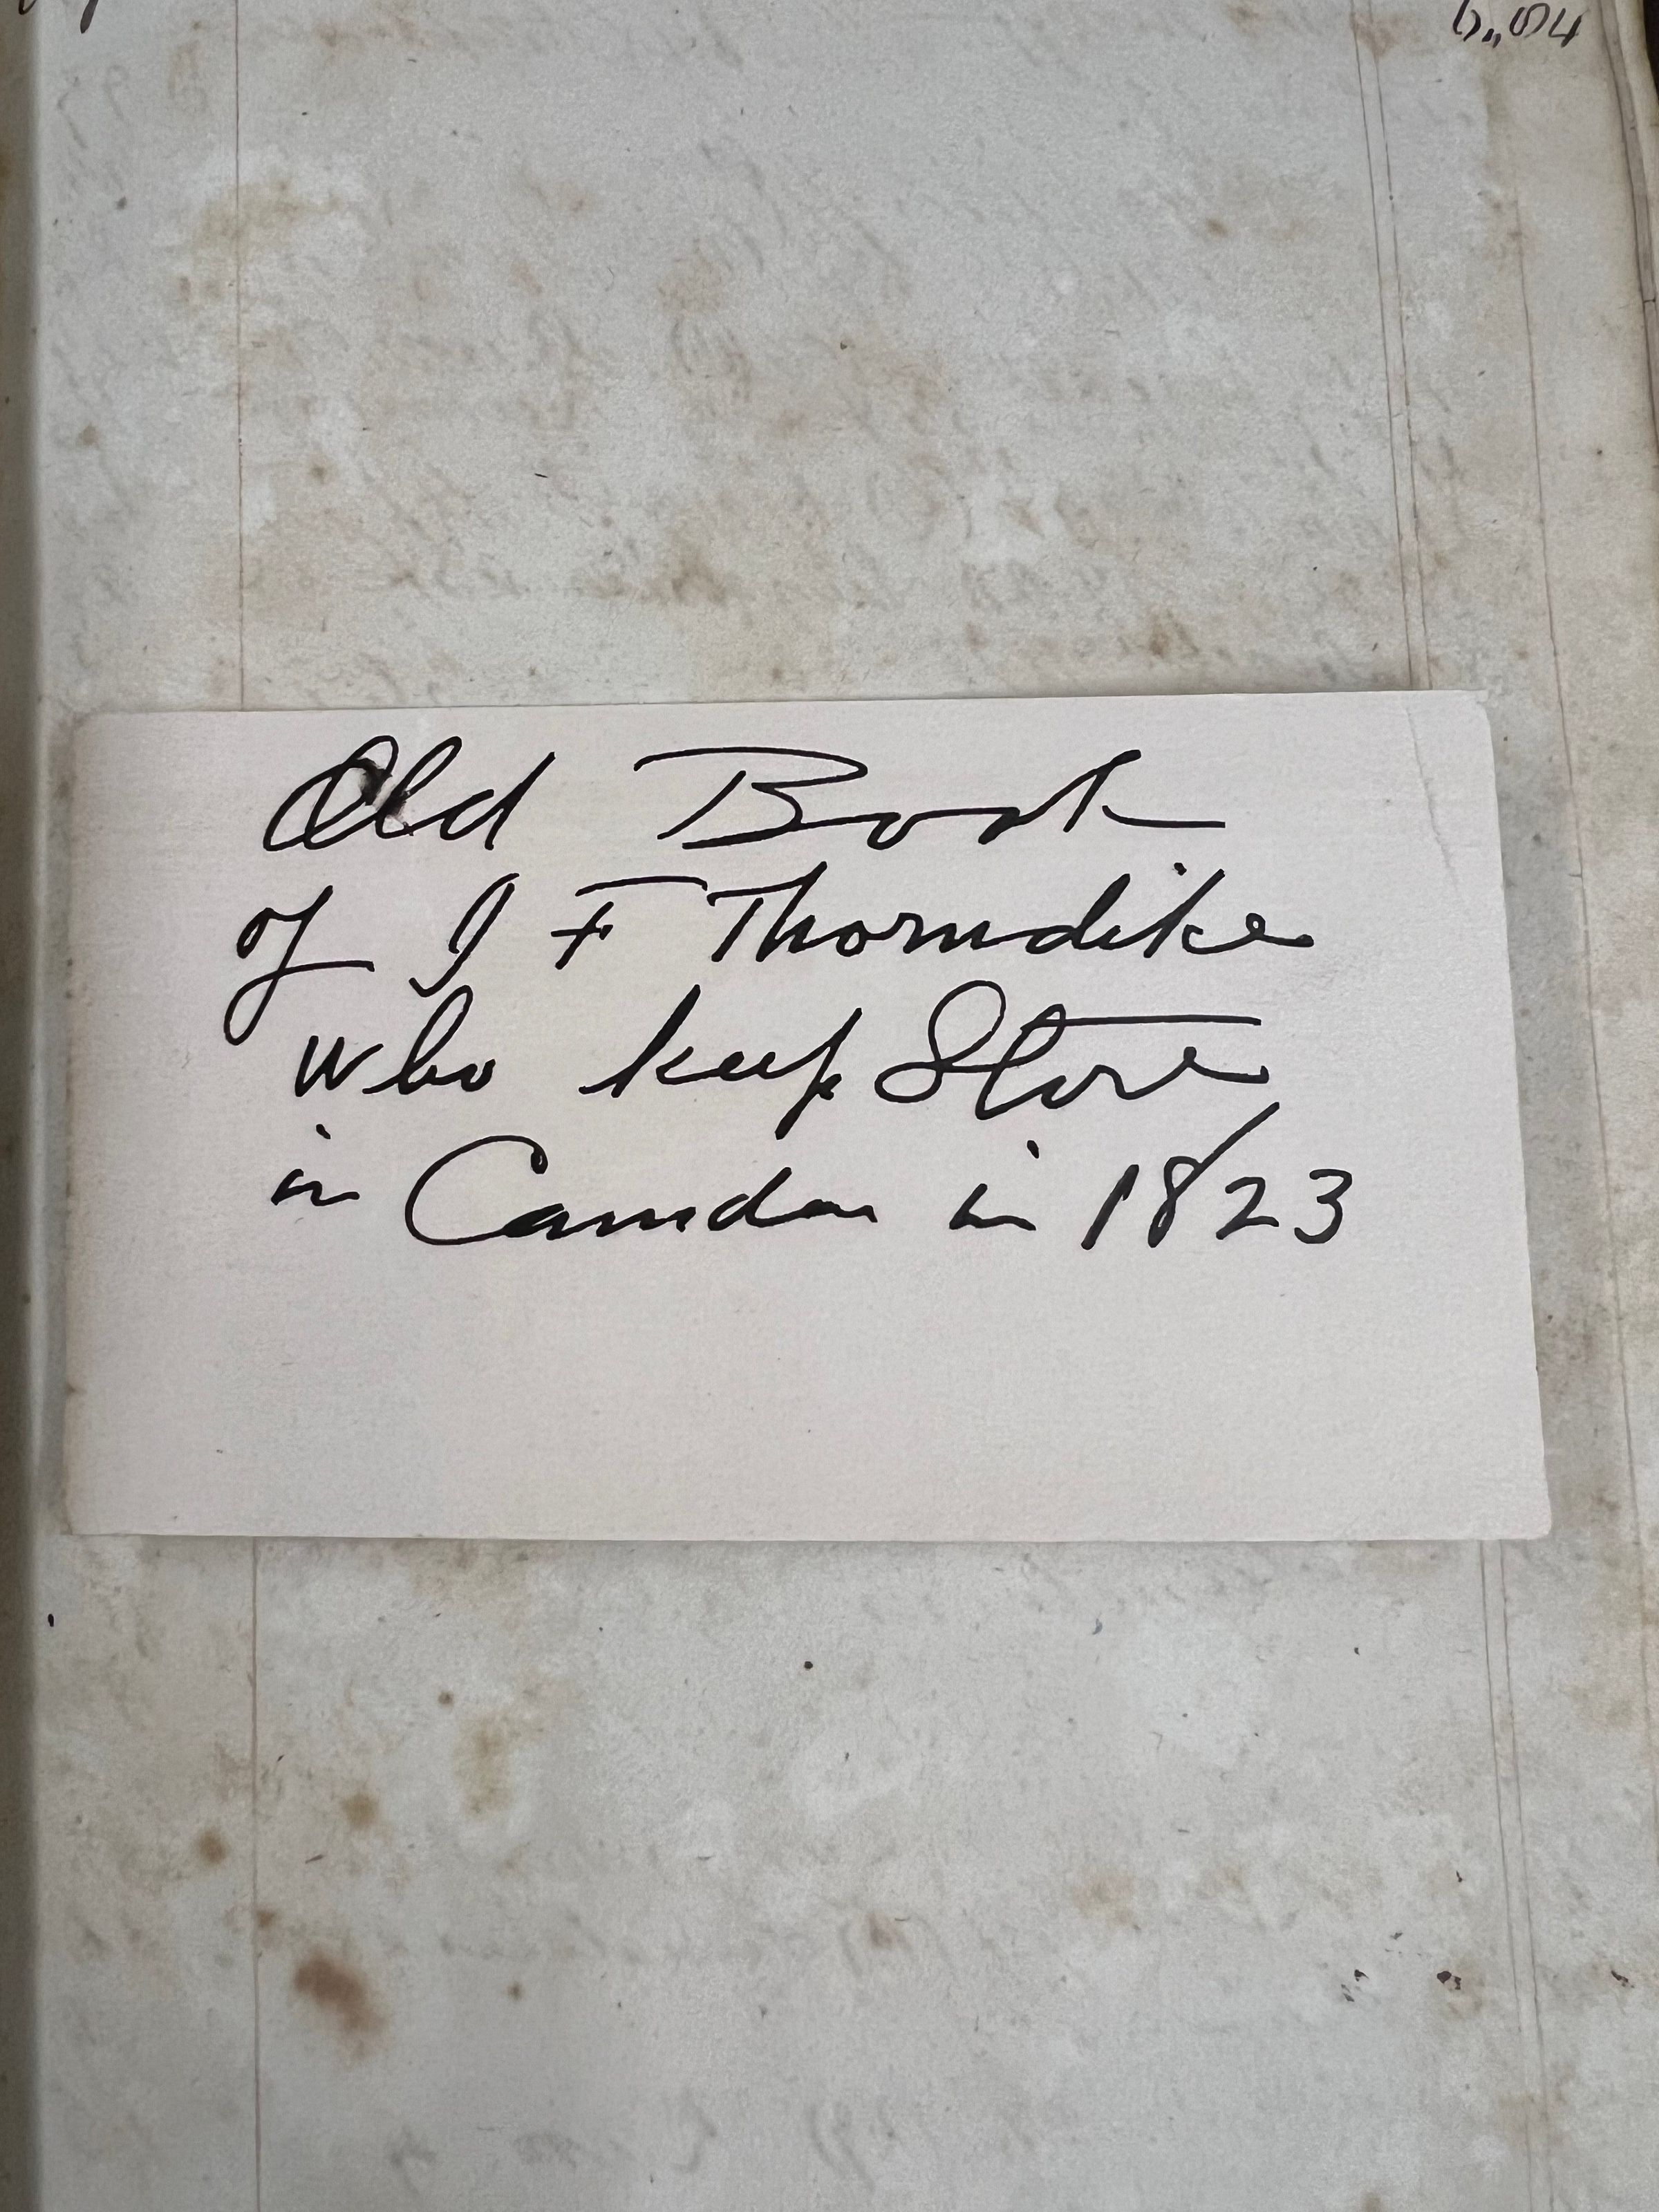 6,,04
Old Book
of J F Thorndike
who keep Store
in Camden in 1823